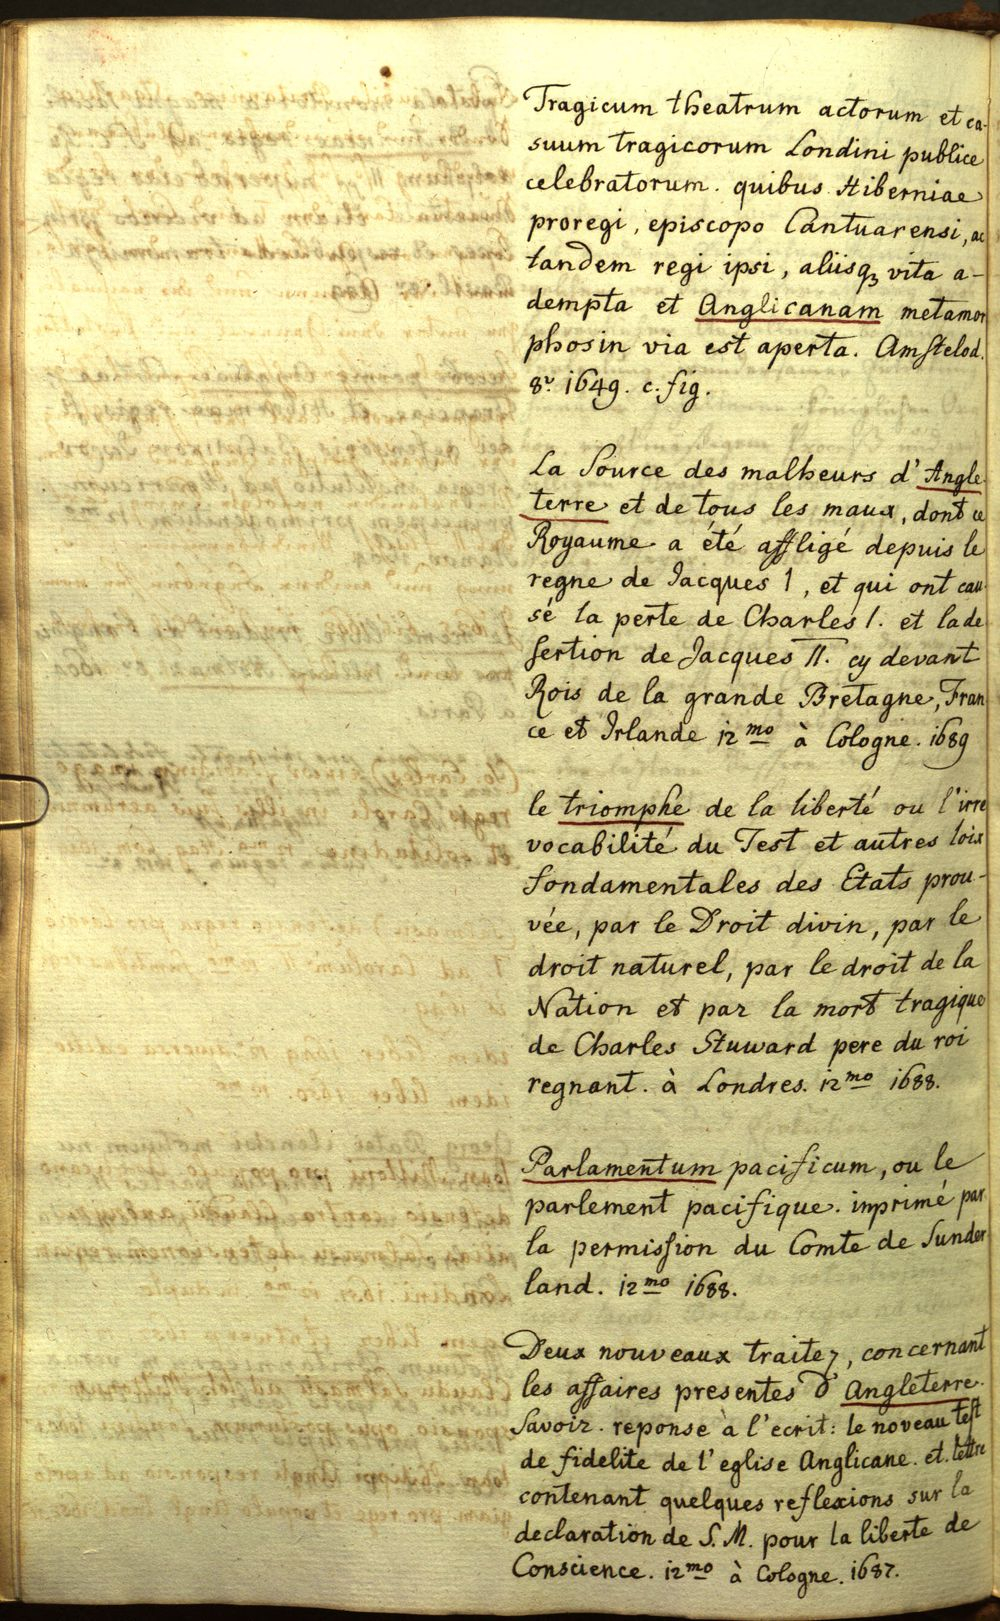 Tragicum theatrum actorum et ca-
suum tragicorum Londini publice
celebratorum. quibus Hiberniae
proregi, episcopo Cantuarensi, ac
tandem regi ipsi, aliisq3 vita a-
dempta et Anglicanam metamor
phosin via est aperta. Amstelod.
8º. 1649. c. fig.
La Source des malheurs d'Angle
terre et de tous les maux, dont ce
Royaume a été affligé depuis le
regne de Jacques 1, et qui ont cau
sé la perte de Charles 1. et la de
sertion de Jacques II. cy devant
Rois de la grande Bretagne, Fran
ce et Irlande 12mo à Cologne. 1689
le triomphe de la liberté ou l'irre
vocabilité du Test et autres loix
fondamentales des Etats prou-
vée, par le Droit divin, par le
droit naturel, par le droit de la
Nation et par la mort tragique
de Charles Stuward pere du roi
regnant. à Londres. 12mo 1688.
Parlamentum pacificum, ou le
parlement pacifique. imprimé par
la permission du Comte de Sunder
land. 12mo 1688.
Deux nouveaux traitez, concernant
les affaires presentes d'Angleterre.
Savoir. reponse à l'ecrit: le noveau test
de fidelite de l'eglise Anglicane. et. lettre
contenant quelques reflexions sur la
declaration de S. M. pour la liberte de
Conscience. 12mo à Cologne. 1687.